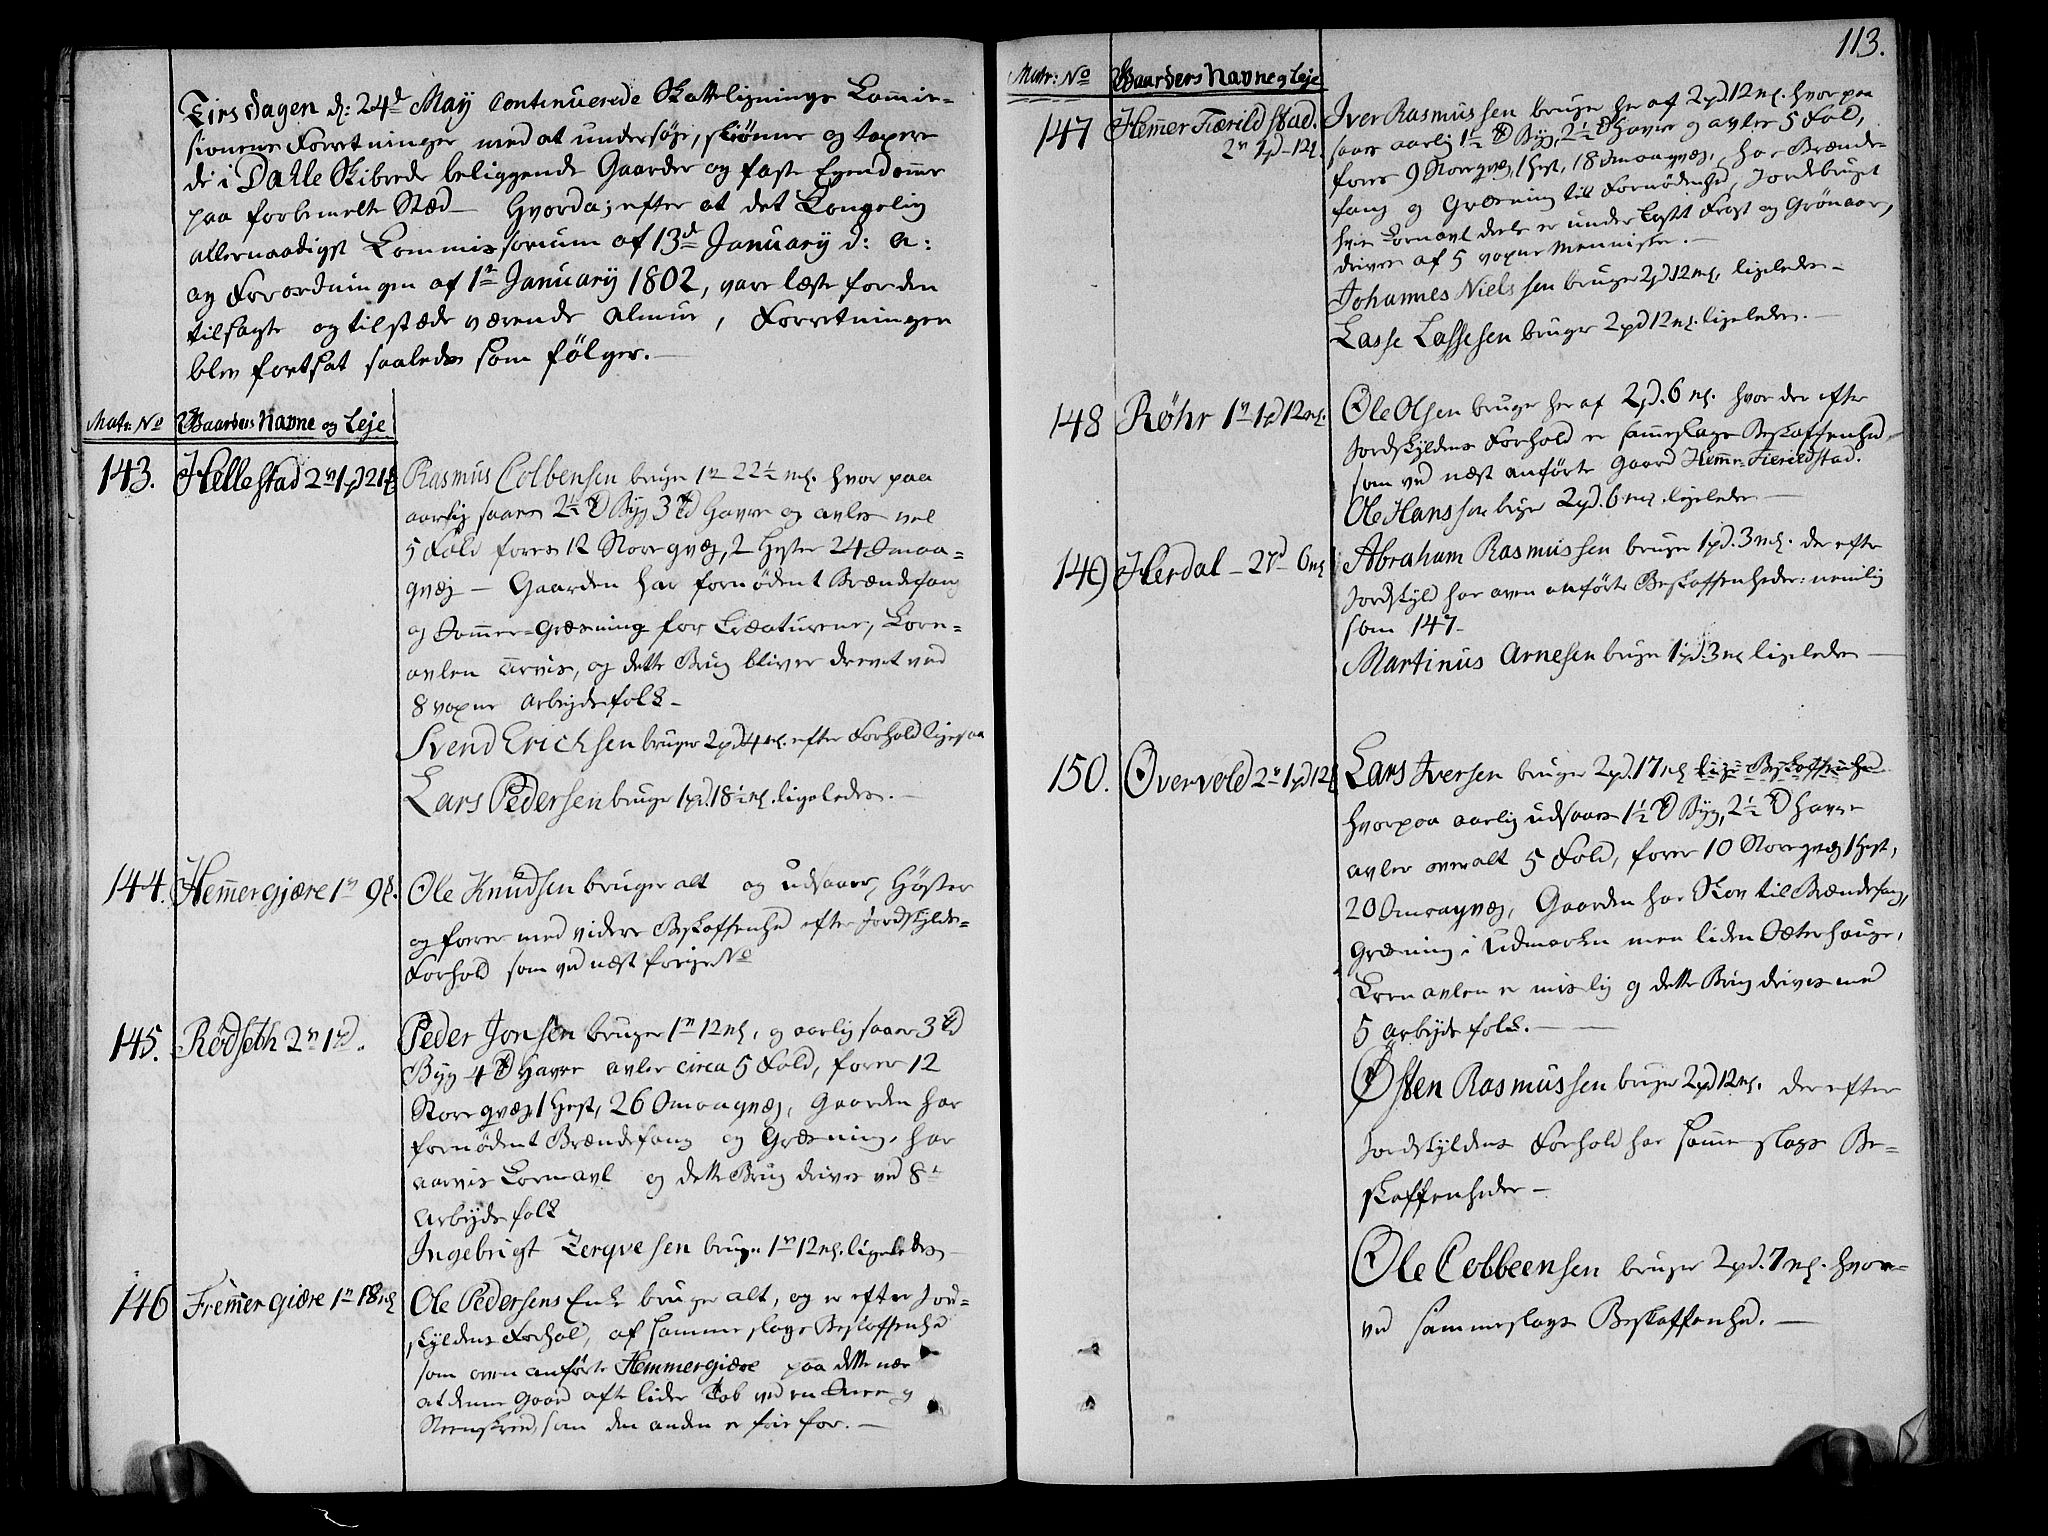 Tirsdagen d: 24d May Continuerede Skattelignings Commis-
sionens Forretninger med at undersøge, skiønne og taxere
de i Dahle Skibrede beliggende Gaarder og faste Eyendomme
paa forbemelte Stæd — Hvorda; efter at det Kongelig
allernaadigst Commissorium af 13d January d: a:
og Forordningen af 1te January 1802, vare læste for den
tilsagte og tilstæde værende Almue, Forretningen
blev fortsat saaledes som følger. —
Matr: No Gaardens Navne og Leje
143. Hellestad 2 1pd 21
Rasmus Colbensen bruger 1 22½ mk. hvorpaa
aarlig saaes 2½ Td Byg 3 Td Havre og avles vel
5 Fold fores 12 Storeqvæg, 2 Heste 24 Smaa-
qvæg — Gaarden har fornødent Brændefang
og Sommer-Græsning for Creaturene, Korn-
avlen urvis, og dette Brug bliver drevet ved
8 voxne Arbejdsfolk —
Svend Erichsen bruger 2pd 4 mk. efter Forhold ligesaa
Lars Pedersen bruger 1pd. 18½ mk. ligeledes. —
144. Hemmergjære 1 9
Ole Knudsen bruger alt og udsaaer, Høster
og forer med videre Beskaffenhed efter Jordskylds-
Forhold som ved næst forige No
145. Rødseth 2 1pd.
Peder Jonsen bruger 1 12 mk, og aarlig saaer 3 Td
Byg 4 Td Havre avler circa 5 Fold, forer 12
Storeqvæg 1 Hest, 26 Smaaqvæg, Gaarden har
fornødent Brændefang og Græsning, har
aarvis Kornavl og dette Brug drives ved 8
Arbejdsfolk
Ingebrigt Tergvesen bruger 1 12 mk. ligeledes —
146 Fremmergiære 1 18 mk
Ole Pedersens Enke bruger alt, og er efter Jord-
skyldens Forhold, af samme slags Beskaffenhed
som oven anførte Hemmergiære paa dette nær
at denne Gaard ofte lider Tab ved en Snee og
Steenskred, som den anden er frie for. —
113.
Matr: No Gaardens Navne og Leje
147 Hemmer Fiærildstad.
2 1pd — 12
Iver Rasmussen bruger her af 2pd 12 mk. hvor paa
saaes aarlig 1½ Td Byg, 2½ Td Havre og avler 5 Fold,
fores 9 Storeqvæg, 1 Hest, 18 Smaaqvæg, har Brænde-
fang og Græsning til Fornødenhed, Jordebruget
hvis Kornavl deels er underkastt Frost og Grønaar,
drives af 5 voxne Mennisker. —
Johannes Nielssen bruger 2pd 12 mk, ligeledes —
Lasse Lassesen bruger 2pd 12 mk. ligeledes. —
148 Røhr 1 1pd 12 mk.
Ole Olsen bruger her af 2pd. 6 mk. hvor der efter
Jordskyldens Forhold er sammeslags Beskaffenhed
som ved næst anførte Gaard Hemmer-Fierildstad.
Ole Hanssen bruger 2pd. 6 mk. ligeledes —
149 Herdal — 2pd 6 mk
Abraham Rasmussen bruger 1pd. 3 mk. der efter
Jordskyld har oven anførte Beskaffenheder: nemlig
som 147 —
Martinus Arnesen bruger 1pd 3 mk ligeledes —
150. Overvold 2 1pd 12
Lars Iversen bruger 2pd. 17 mk lige Beskaffenhed
hvorpaa aarlig udsaaes 1½ Td Byg, 2½ Td Havre
avler overalt 5 Fold, forer 10 Storeqvæg 1 Hest,
20 Smaaqvæg, Gaarden har Skov til Brændefang,
Græsning i Udmarken men liden Sæterhauge,
Kornavlen er mislig og dette Brug drives med
5 Arbejdsfolk. —
Østen Rasmussen bruger 2pd 12 mk. der efter
Jordskyldens Forhold har samme slags Be-
skaffenheder —
Ole Colbeensen bruger 2pd. 7 mk. hvor-
ved sammeslags Beskaffenhed. —